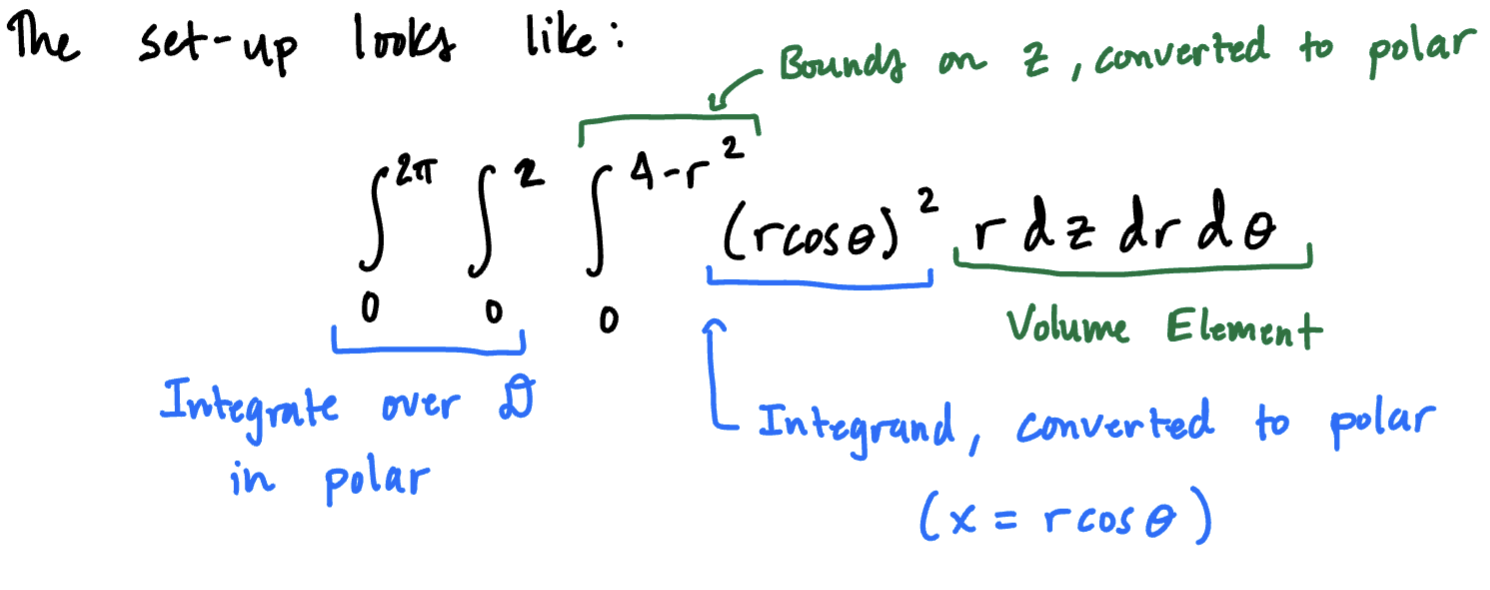 The set-up looks like:
Bounds on z, converted to polar
∫₀^{2π} ∫₀^{2} ∫₀^{4-r²} (rcosθ)² r dz dr dθ
Volume Element
Integrate over D
in polar
Integrand, converted to polar
(x = rcosθ)